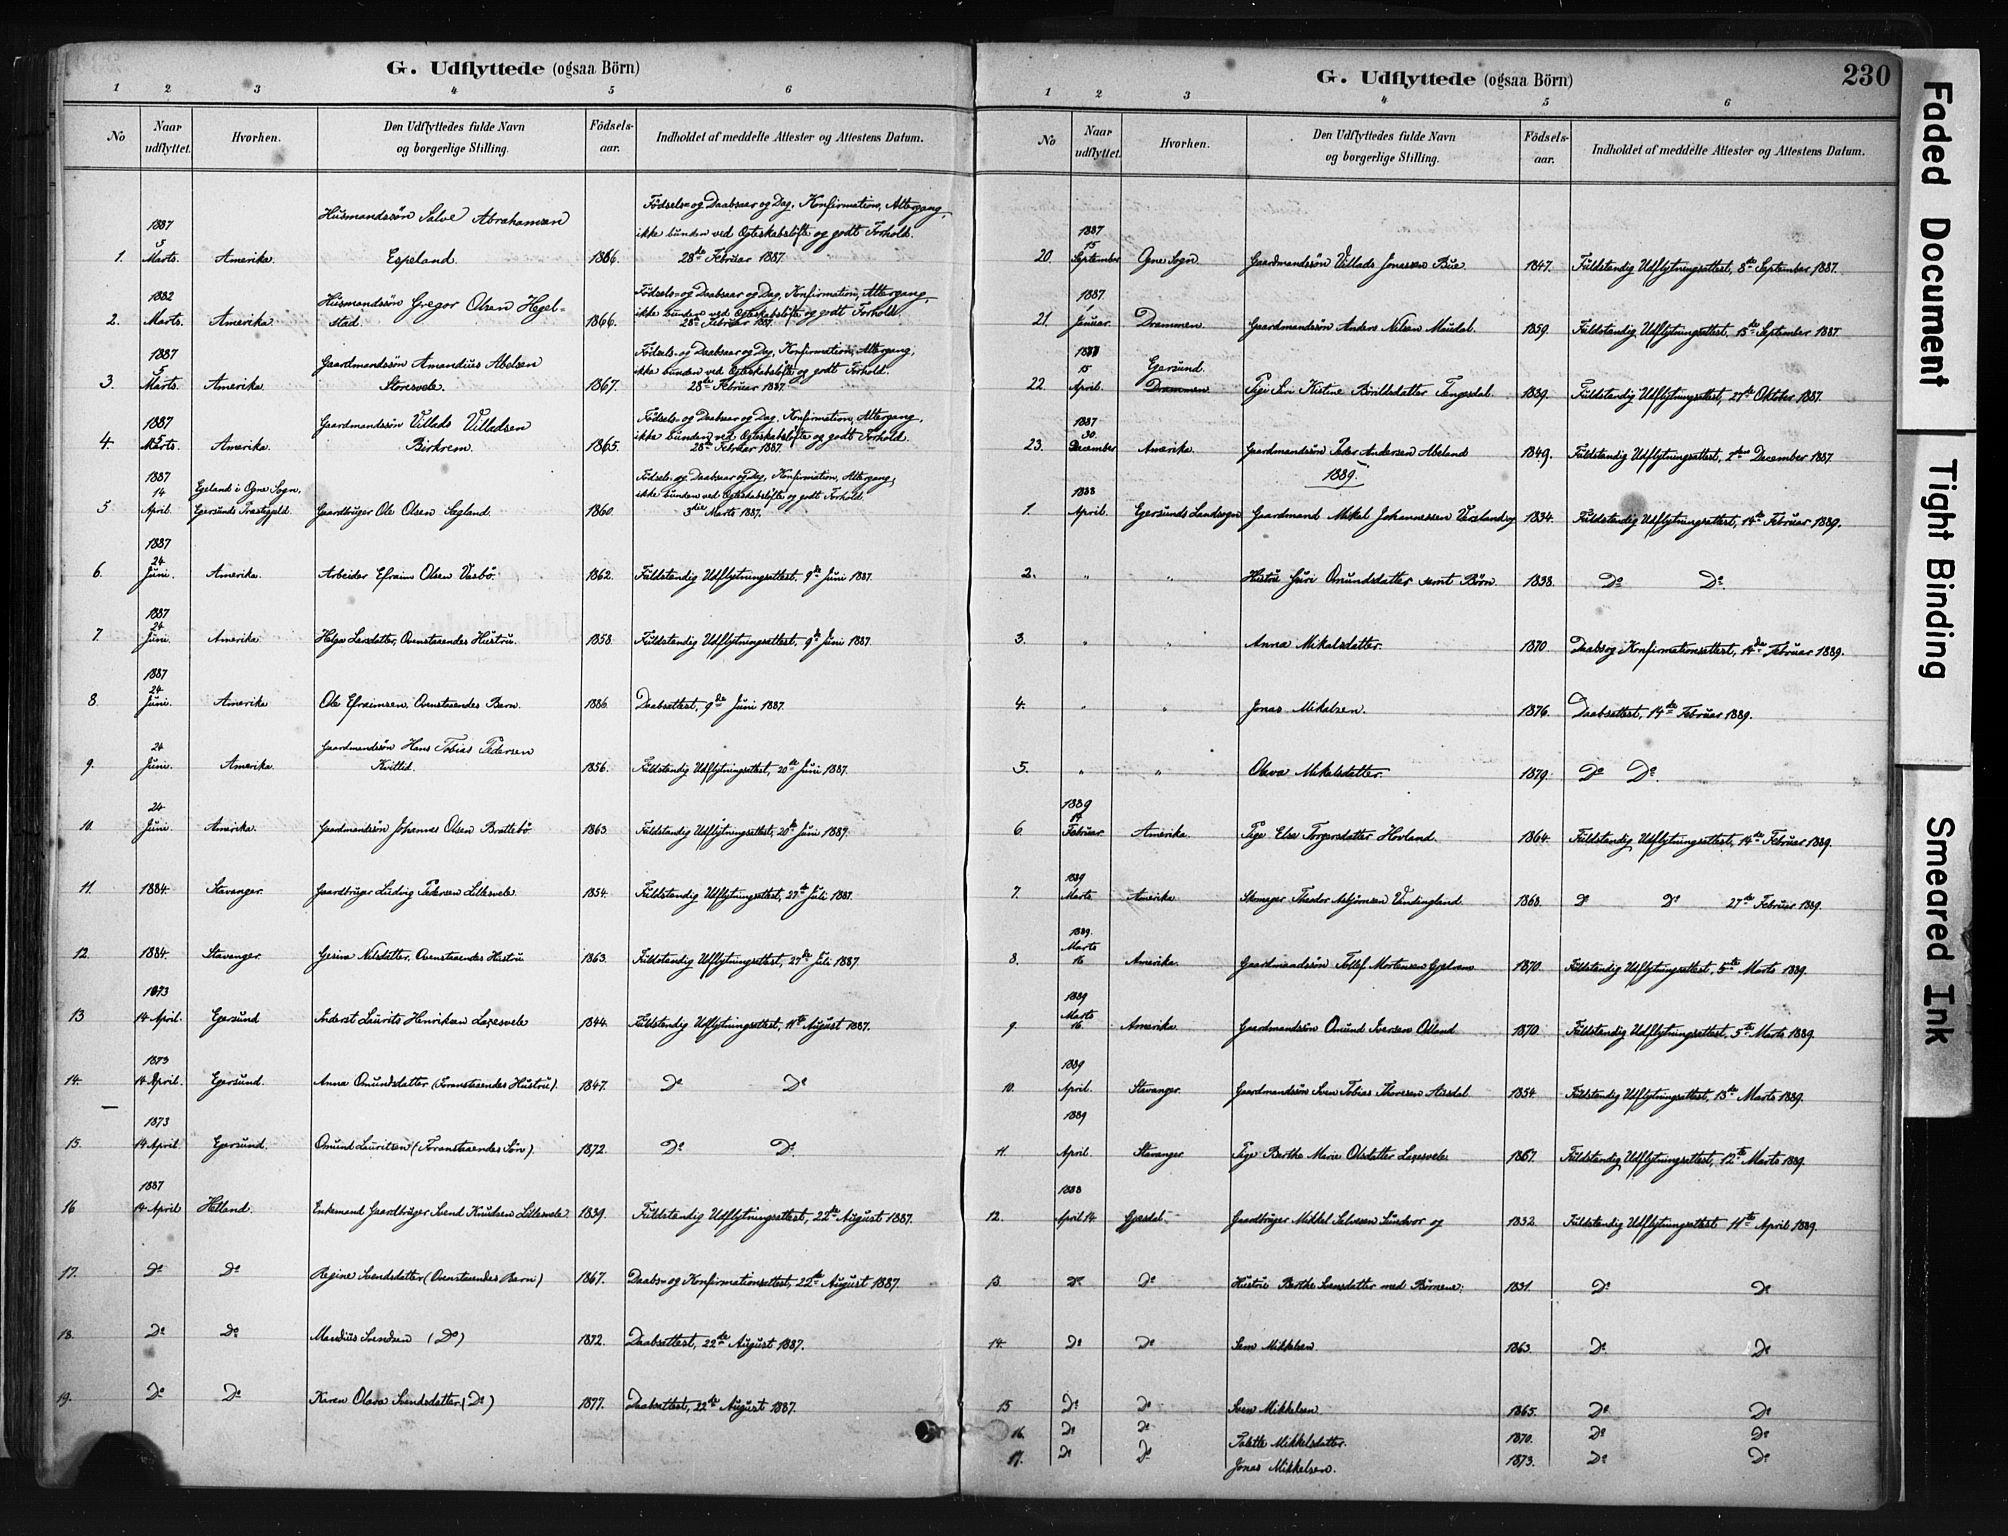 G. Udflyttede (ogsaa Börn)
1 2 3 4 5 6
No Naar udflyttet. Hvorhen. Den Udflyttedes fulde Navn og borgerlige Stilling. Födsels-aar. Indholdet af meddelte Attester og Attestens Datum.
Husmandssön Salve Abrahamsen Födsels- og Daabsaar og Dag, Konfirmation, Altergang,
1887 ikke bunden ved Egteskabslöfte og godt Forhold.
1. 5 Marts. Amerika. Espeland. 1866. 28de Februar 1887.
1882 Husmandssön Gregor Olsen Hegel- Födsels- og Daabsaar og Dag, Konfirmation, Altergang,
ikke bunden ved Egteskabslöfte og godt Forhold.
2. Marts. Amerika. stad. 1866. 28de Februar 1887.
1887 Gaardmandssön Amandius Abelsen Födsels- og Daabsaar og Dag, Konfirmation, Altergang,
ikke bunden ved Egteskabslöfte og godt Forhold.
3. 5 Marts. Amerika. Storesvele. 1867. 28de Februar 1887.
1887 Gaardmandssön Villads Villadsen Födsels- og Daabsaar og Dag, Konfirmation, Altergang,
ikke bunden ved Egteskabslöfte og godt Forhold.
4. 5 Marts. Amerika. Birkrem. 1865. 28de Februar 1887.
1887 Födsels- og Daabsaar og Dag, Konfirmation, Altergang,
14 Egeland i Ogne Sogn, ikke bunden ved Egteskabslöfte og godt Forhold.
5 April. Egersunds Præstegjeld. Gaardbruger Ole Olsen 1860. 3die Marts 1887.
1887
6. 24 Juni. Amerika. Arbeider Efraim Olsen Vasbö. 1862. Fuldstendig Udflytningsattest, 9de Juni 1887.
1887
7. 24 Juni. Amerika. Helga Larsdatter, Ovenstaaendes Hustru. 1858 Fuldstendig Udflytningsattest, 9de Juni 1887.
1887
8. 24 Juni. Amerika Ole Efraimsen, Ovenstaaendes Barn. 1886. Daabsattest, 9de Juni 1887.
24 Gaardmandssön Hans Tobias Pedersen
9. Juni. Amerika. Kvitlid. 1856. Fuldstendig Udflytningsattest, 20de Juni 1887.
24
10. Juni. Amerika. Gaardmandssön Johannes Olsen Brattebö 1863 Fuldstendig Udflytningsattest, 20de Juni 1887.
11. 1884. Stavanger. Gaardbruger Ludvig Pedersen Lillesvele. 1854. Fuldstendig Udflytningsattest, 27de Juli 1887.
12. 1884. Stavanger Gesine Nilsdatter, Ovenstaaendes Hustru 1863. Fuldstendig Udflytningsattest, 27de Juli 1887.
1873
13 14 April. Egersund Inderst Laurits Henriksen Laxesvele 1844. Fuldstendig Udflytningsattest, 11te August 1887.
1873
14. 14 April. Egersund. Anna Omundsdatter (Foranstaaendes Hustru). 1847. Do Do
1873
15. 14 April Egersund. Omund Lauritsen (Foranstaaendes Sön). 1872. Do Do.
1887
16 14 April Hetland. Enkemand Gaardbruger Svend Knudsen Lillesvele. 1839. Fuldstendig Udflytningsattest, 22de August 1887.
17. Do Do Regine Svendsdatter (Ovenstaaendes Barn) 1867. Daabs- og Konfirmationsattest, 22de August 1887.
18. Do Do Mandius Svendsen (Do) 1872. Daabsattest, 22de August 1887.
19. Do Do Karen Olava Svendsdatter (Do) 1877. Daabsattest, 22de August 1887.
G. Udflyttede (ogsaa Börn) 230
1 2 3 4 5 6
No Naar udflyttet. Hvorhen. Den Udflyttedes fulde Navn og borgerlige Stilling. Födsels-aar. Indholdet af meddelte Attester og Attestens Datum.
1887
20. 15 September Ogne Sogn. Gaardmandssön Villads Jonassen Bue. 1847. Fuldstendig Udflytningsattest, 8de September 1887.
1887.
21. 1 Januar. Drammen. Gaardmandssön Anders Nilsen Maudal. 1859. Fuldstendig Udflytningsattest, 15de September 1887.
15 Egersund.
22 April. Drammen Pige Kistine Tengesdal 1889. Fuldstendig Udflytningsattest, 27de Oktober 1887.
1887
23. 30. December Amerika. Gaardmandssön Peder Andersen Abeland 1849. Fuldstendig Udflytningsattest, December 1887
1889.
1888
1. April. Egersunds Landsogn Gaardmand Mikal Johannessen og 1834. Fuldstendig Udflytningsattest, 14de Februar 1889.
2. " " Hustru Guri Omundsdatter samt Börn 1838. Do Do.
3. " " Anna Mikalsdatter. 1870 Daabs og Konfirmationsattest, 14de Februar 1889.
4. " " Jonas Mikalsen. 1876. Daabsattest, 14de Februar 1889.
5. " " Olava Mikalsdatter. 1879. Do Do.
1889
6. 14 Februar Amerika. Pige Else Torgersdatter Hovland. 1864. Fuldstendig Udflytningsattest, 14de Februar 1889.
1889
7. Marts Amerika. Skomager Theodor Asbjörnsen Vindingland. 1868. Do Do 27de Februar 1889.
1889.
8. Marts 16 Amerika. Gaardmandssön Tollef Mortensen Gjedrem 1870. Fuldstendig Udflytningsattest, 5te Marts 1889.
1889
9. Marts 16. Amerika. Gaardmandssön Omund Iversen Odland 1870. Fuldstendig Udflytningsattest, 5te Marts 1889.
1889
10. April. Stavanger. Gaardmandssön Sven Tobias Thoresen Aasdal. 1854. Fuldstendig Udflytningsattest, 13de Marts 1889.
1889
11. April. Stavanger Pige Berthe Marie Olsdatter Laxesvele 1867. Fuldstendig Udflytningsattest, 12te Marts 1889.
1888
12. April 14 Gjesdal. Gaardbruger Mikkel Salvesen Sundvor og 1832. Fuldstendig Udflytningsattest 11te April 1889.
13. Do Do Hustru Berthe Svensdatter med Börnene: 1831. Do Do
14. Do Do Sem Mikkelsen. 1863. Do. Do
15 Do Do Sven Mikkelsen. 1865. Do Do
16. Do Do Tolette Mikkelsdatter. 1870. Do Do
17. Do Do Jonas Mikkelsen. 1873. Do Do
Faded Document
Tight Binding
Smeared Ink